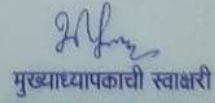 मुख्याध्यापकाची स्वाक्षरी